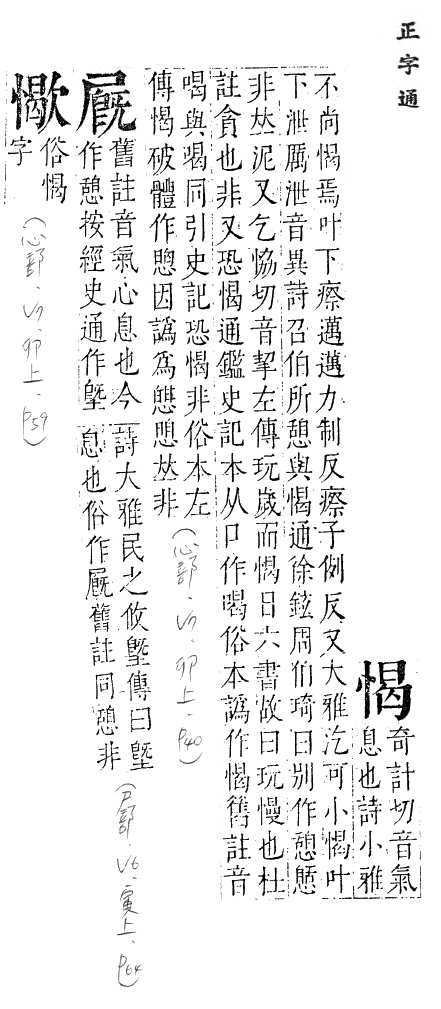 正字通
愒
奇計切音氣
息也詩小雅
不尚愒焉叶下瘵邁邁力制反瘵子例反又大雅汔可小愒叶
下泄厲泄音異詩召伯所憩與愒通徐鉉周伯琦曰別作憩㥏
非𠀤泥又乞恊切音挈左傳玩歲而愒日六書故曰玩慢也杜
註貪也非又恐愒通鑑史記本从口作喝俗本譌作愒舊註音
喝與喝同引史記恐愒非俗本左
傳愒破體作㥏因譌爲㦢㥏𠀤非
(心部.V7.卯上.P40)
㞃
舊註音氣心息也今
作憩按經史通作塈
詩大雅民之攸塈傳曰塈
息也俗作㞃舊註同憩非
(尸部.V6.寅上.P64)
憿
俗愒
字
(心部.V7.卯上.P59)